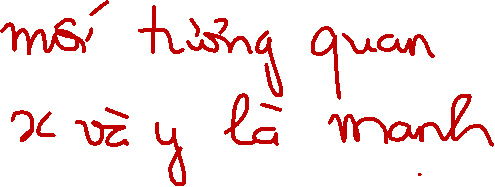 mối tương quan
x và y là mạnh